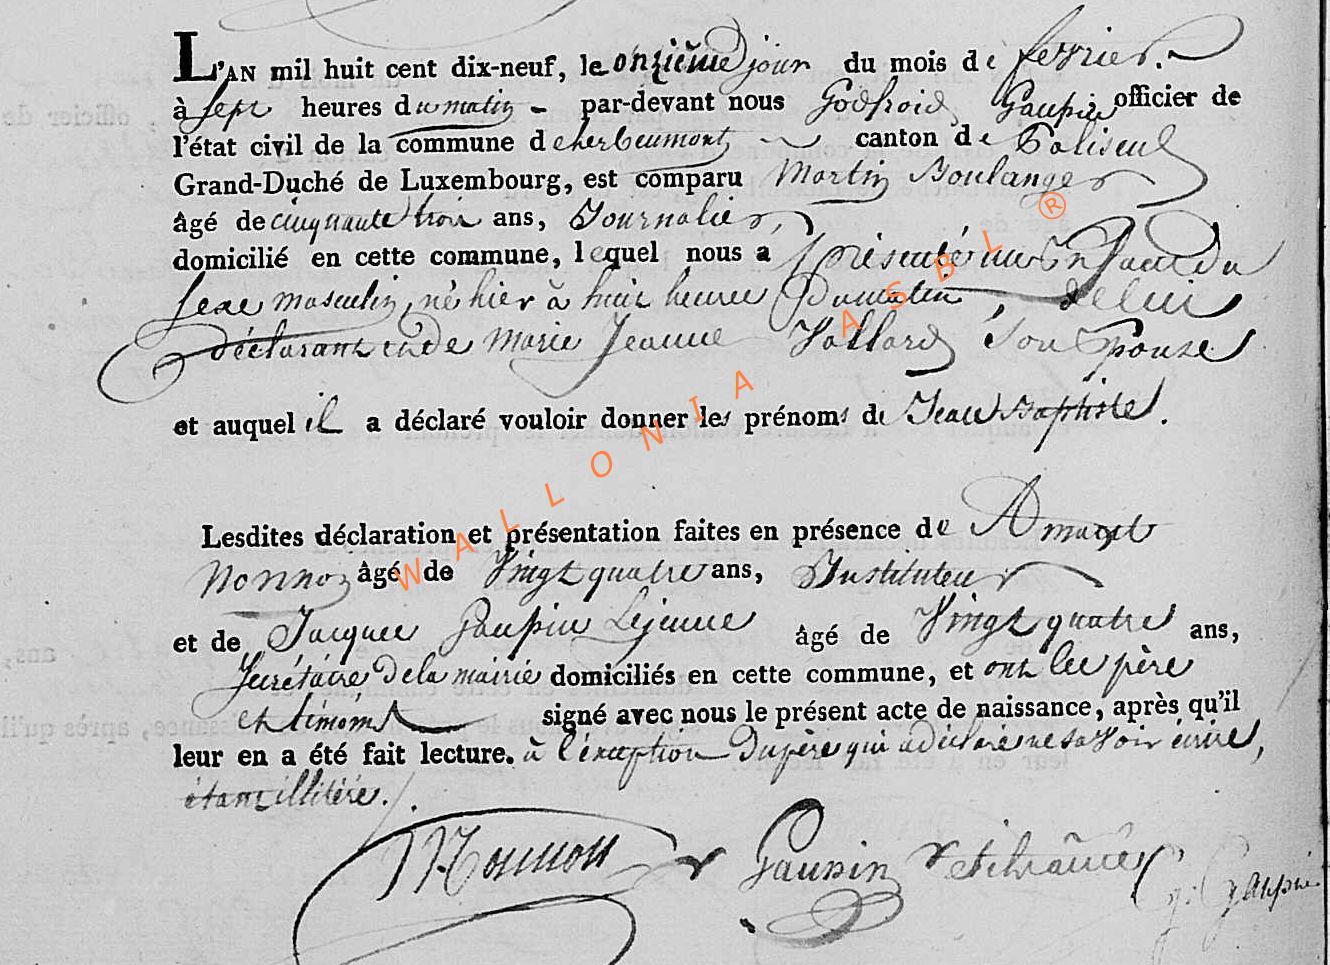 L'AN mil huit cent dix-neuf, le onzième jour du mois de fevrier.
à sept heures du matin - par-devant nous Godfroid Gaupin officier de
l'état civil de la commune d'herbeumont canton de Paliseul
Grand-Duché de Luxembourg, est comparu Martin Boulanger
âgé de cinquante trois ans, Journalier,
domicilié en cette commune, lequel nous a présenté un Enfant du
sexe masculin, né hier à huit heures Du matin, de lui
déclarant et de Marie Jeanne son Epouse
et auquel il a déclaré vouloir donner les prénoms de Jean Baptiste.
Lesdites déclaration et présentation faites en présence de Amand
Nonnon âgé de Vingt quatre ans, Instituteur
et de Jacques Gaupin Lejeune âgé de Vingt quatre ans,
Secrétaire De la mairie domiciliés en cette commune, et ont les père
et témoins signé avec nous le présent acte de naissance, après qu'il
leur en a été fait lecture. à l'éxception Du père qui a déclaré ne savoir écrire,
étant illitéré.
Nonnon Gaupin G. Gaupin
WALLONIA ASBL ®